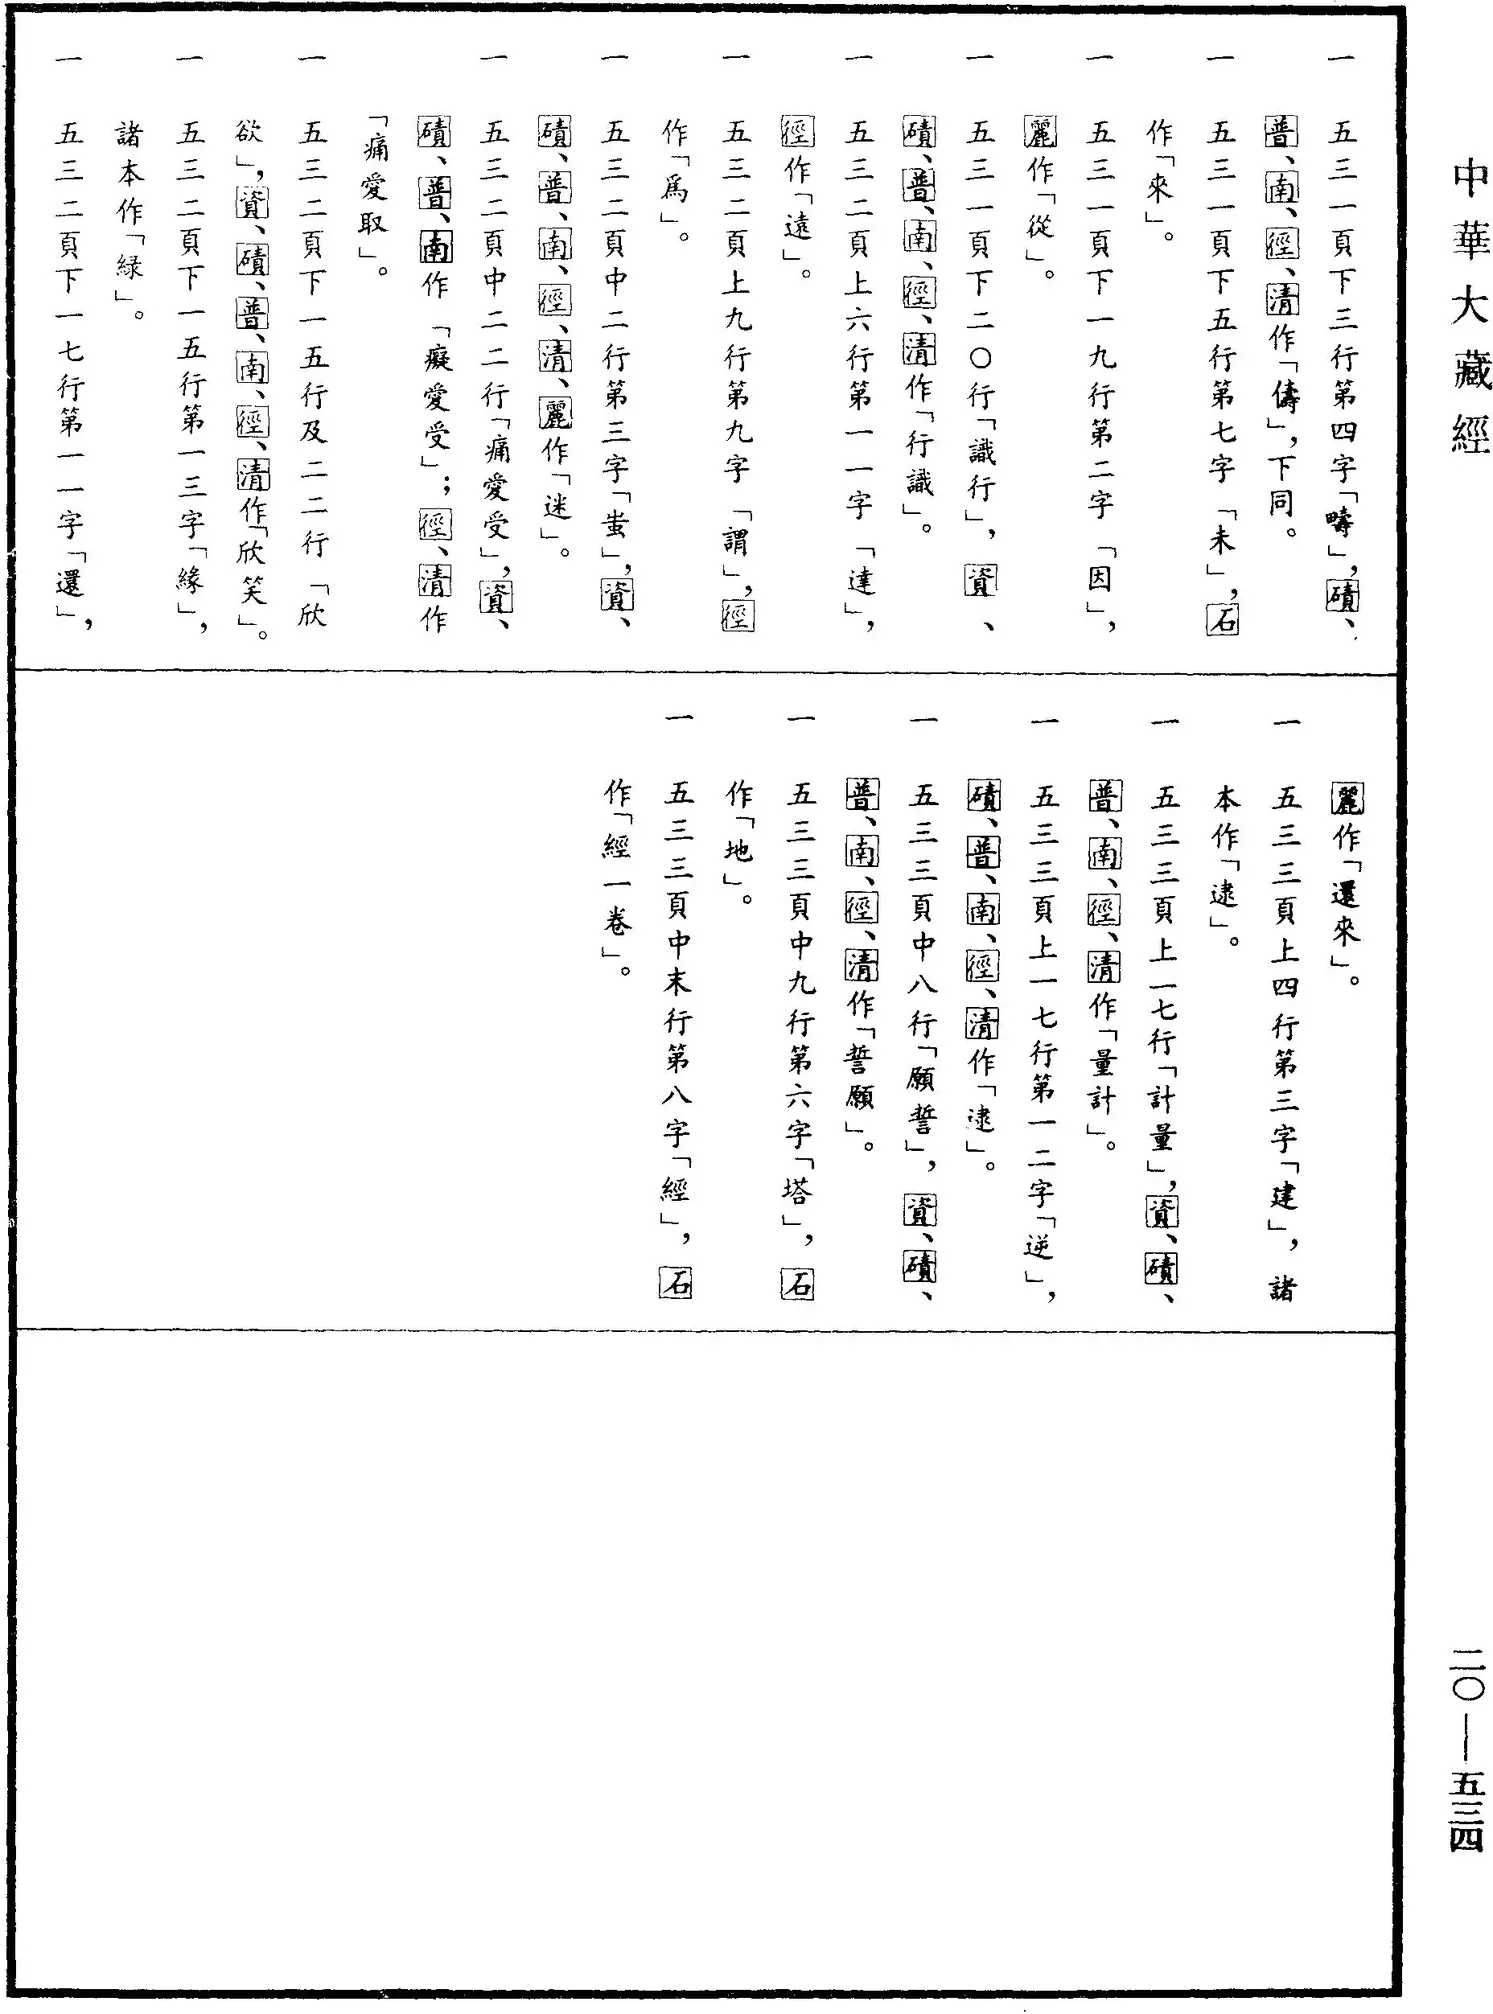 中華大藏經
一 五三一頁下三行第四字「疇」，磧、
普、南、徑、清作「儔」，下同。
一 五三一頁下五行第七字「未」，石
作「來」。
一 五三一頁下一九行第二字「因」，
麗作「從」。
一 五三一頁下二〇行「識行」，資、
磧、普、南、徑、清作「行識」。
一 五三二頁上六行第一一字「達」，
徑作「遠」。
一 五三二頁上九行第九字「謂」，徑
作「爲」。
一 五三二頁中二行第三字「蚩」，資、
磧、普、南、徑、清、麗作「迷」。
一 五三二頁中二二行「痛愛受」，資、
磧、普、南作「癡愛受」；徑、清作
「痛愛取」。
一 五三二頁下一五行及二二行「欣
欲」，資、磧、普、南、徑、清作「欣笑」。
一 五三二頁下一五行第一三字「緣」，
諸本作「緑」。
一 五三二頁下一七行第一一字「還」，
麗作「還來」。
一 五三三頁上四行第三字「建」，諸
本作「逮」。
一 五三三頁上一七行「計量」，資、磧、
普、南、徑、清作「量計」。
一 五三三頁上一七行第一二字「逆」，
磧、普、南、徑、清作「逮」。
一 五三三頁中八行「願誓」，資、磧、
普、南、徑、清作「誓願」。
一 五三三頁中九行第六字「塔」，石
作「地」。
一 五三三頁中末行第八字「經」，石
作「經一卷」。
二〇—五三四